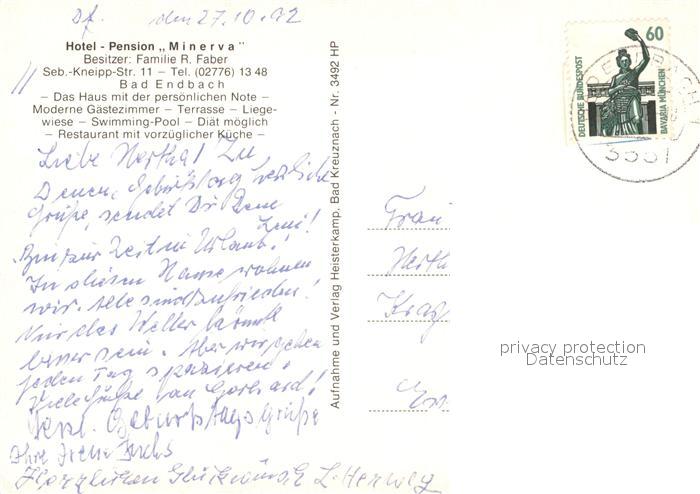 den 27.10.92
Hotel - Pension „Minerva"
Besitzer: Familie R. Faber
Seb.-Kneipp-Str. 11 – Tel. (02776) 13 48
Bad Endbach
– Das Haus mit der persönlichen Note –
Moderne Gästezimmer – Terrasse – Liege-
wiese – Swimming-Pool – Diät möglich
– Restaurant mit vorzüglicher Küche –
Liebe Hertha! Zu
Deinem Geburtstag herzliche
Grüße, sendet Dir Deine
Leni!
Bin zur Zeit in Urlaub!
In diesem Hause wohnen
wir. Alle sind zufrieden!
Nur das Wetter könnte
besser sein. Aber wir gehen
jeden Tag spazieren.
Viele Grüße an Gerhard!
Herzl. Geburtstagsgrüße
Ihre Irene Fuchs
Herzlichen Glückwunsch L. Herweg
Aufnahme und Verlag Heisterkamp, Bad Kreuznach - Nr. 3492 HP
60
DEUTSCHE BUNDESPOST
BAVARIA MÜNCHEN
Frau
Herth
privacy protection
Datenschutz